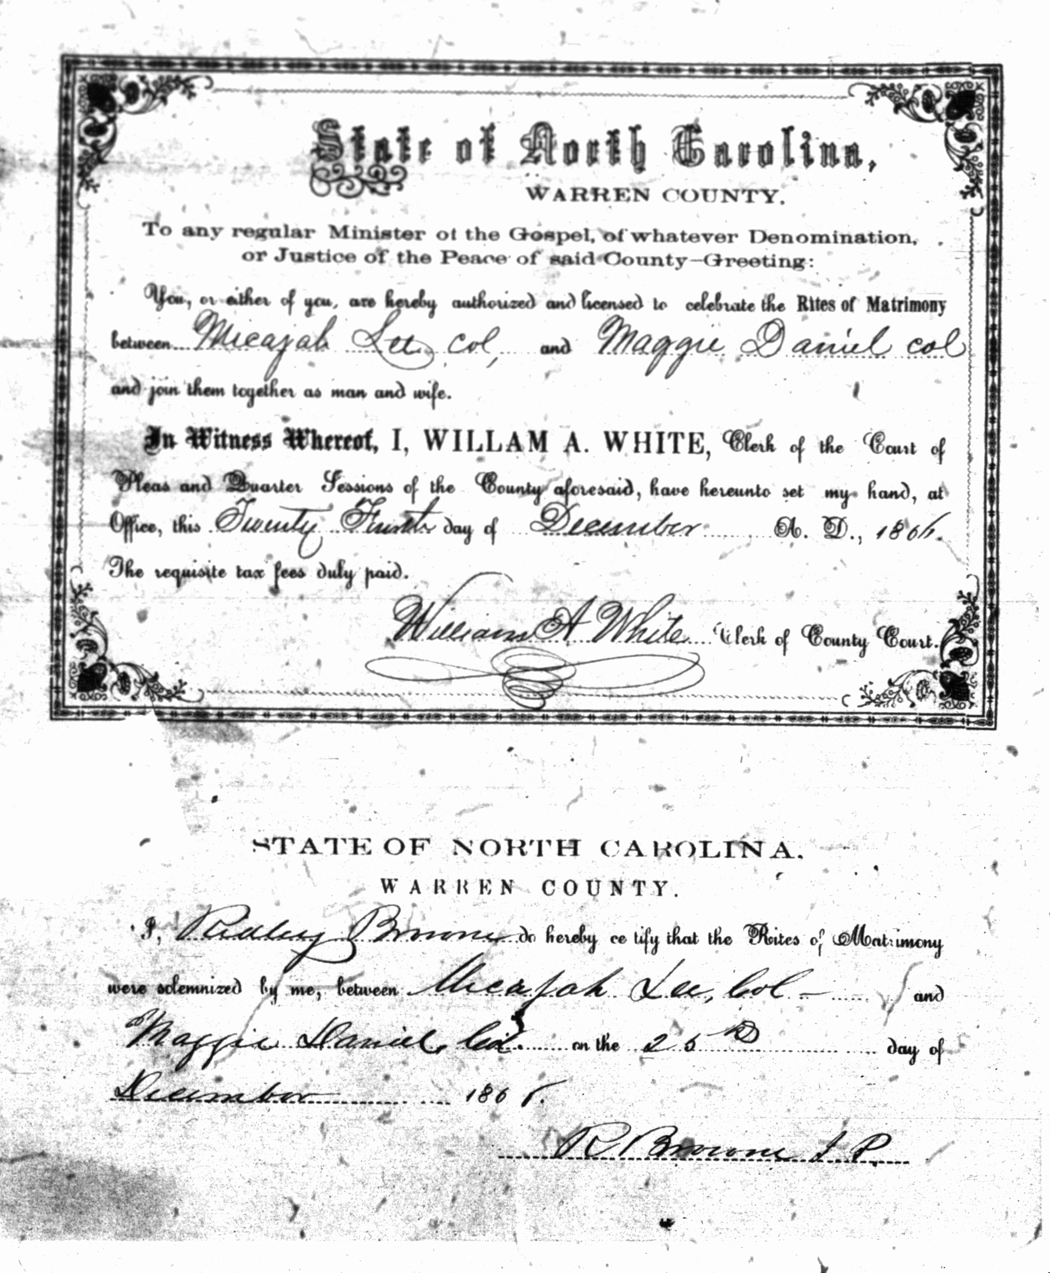 State of North Carolina,
WARREN COUNTY.
To any regular Minister of the Gospel, of whatever Denomination,
or Justice of the Peace of said County—Greeting:
You, or either of you, are hereby authorized and licensed to celebrate the Rites of Matrimony
between Micajah Lee, col, and Maggie Daniel col
and join them together as man and wife.
In Witness Whereof, I, WILLAM A. WHITE, Clerk of the Court of
Pleas and Quarter Sessions of the County aforesaid, have hereunto set my hand, at
Office, this Twenty day of December A. D., 1866.
The requisite tax fees duly paid.
William A White Clerk of County Court.
STATE OF NORTH CAROLINA.
WARREN COUNTY.
I, Ridley Browne do hereby ce tify that the Rites of Matrimony
were solemnized by me, between Micajah Lee, Col — and
Maggie Daniel, Col. on the 25 day of
December 186
R Browne J P.